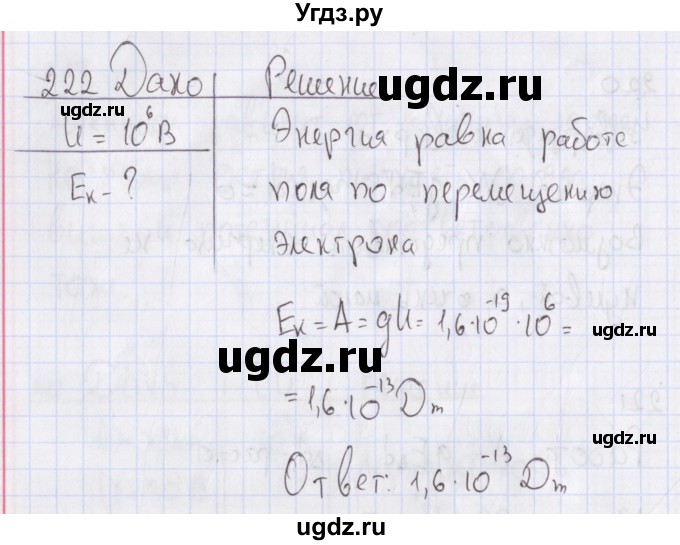 Угдз.ру
222 Дано Решение
ugdz.ru
ugdz.ru
U = 10⁶ В Энергия равна работе
Eк - ? поля по перемещению
электрона
Eк = A = qU = 1,6·10⁻¹⁹·10⁶ =
ugdz.ru
ugdz.ru
= 1,6·10⁻¹³ Дж
ugdz.ru
Ответ: 1,6·10⁻¹³ Дж
ugdz.ru